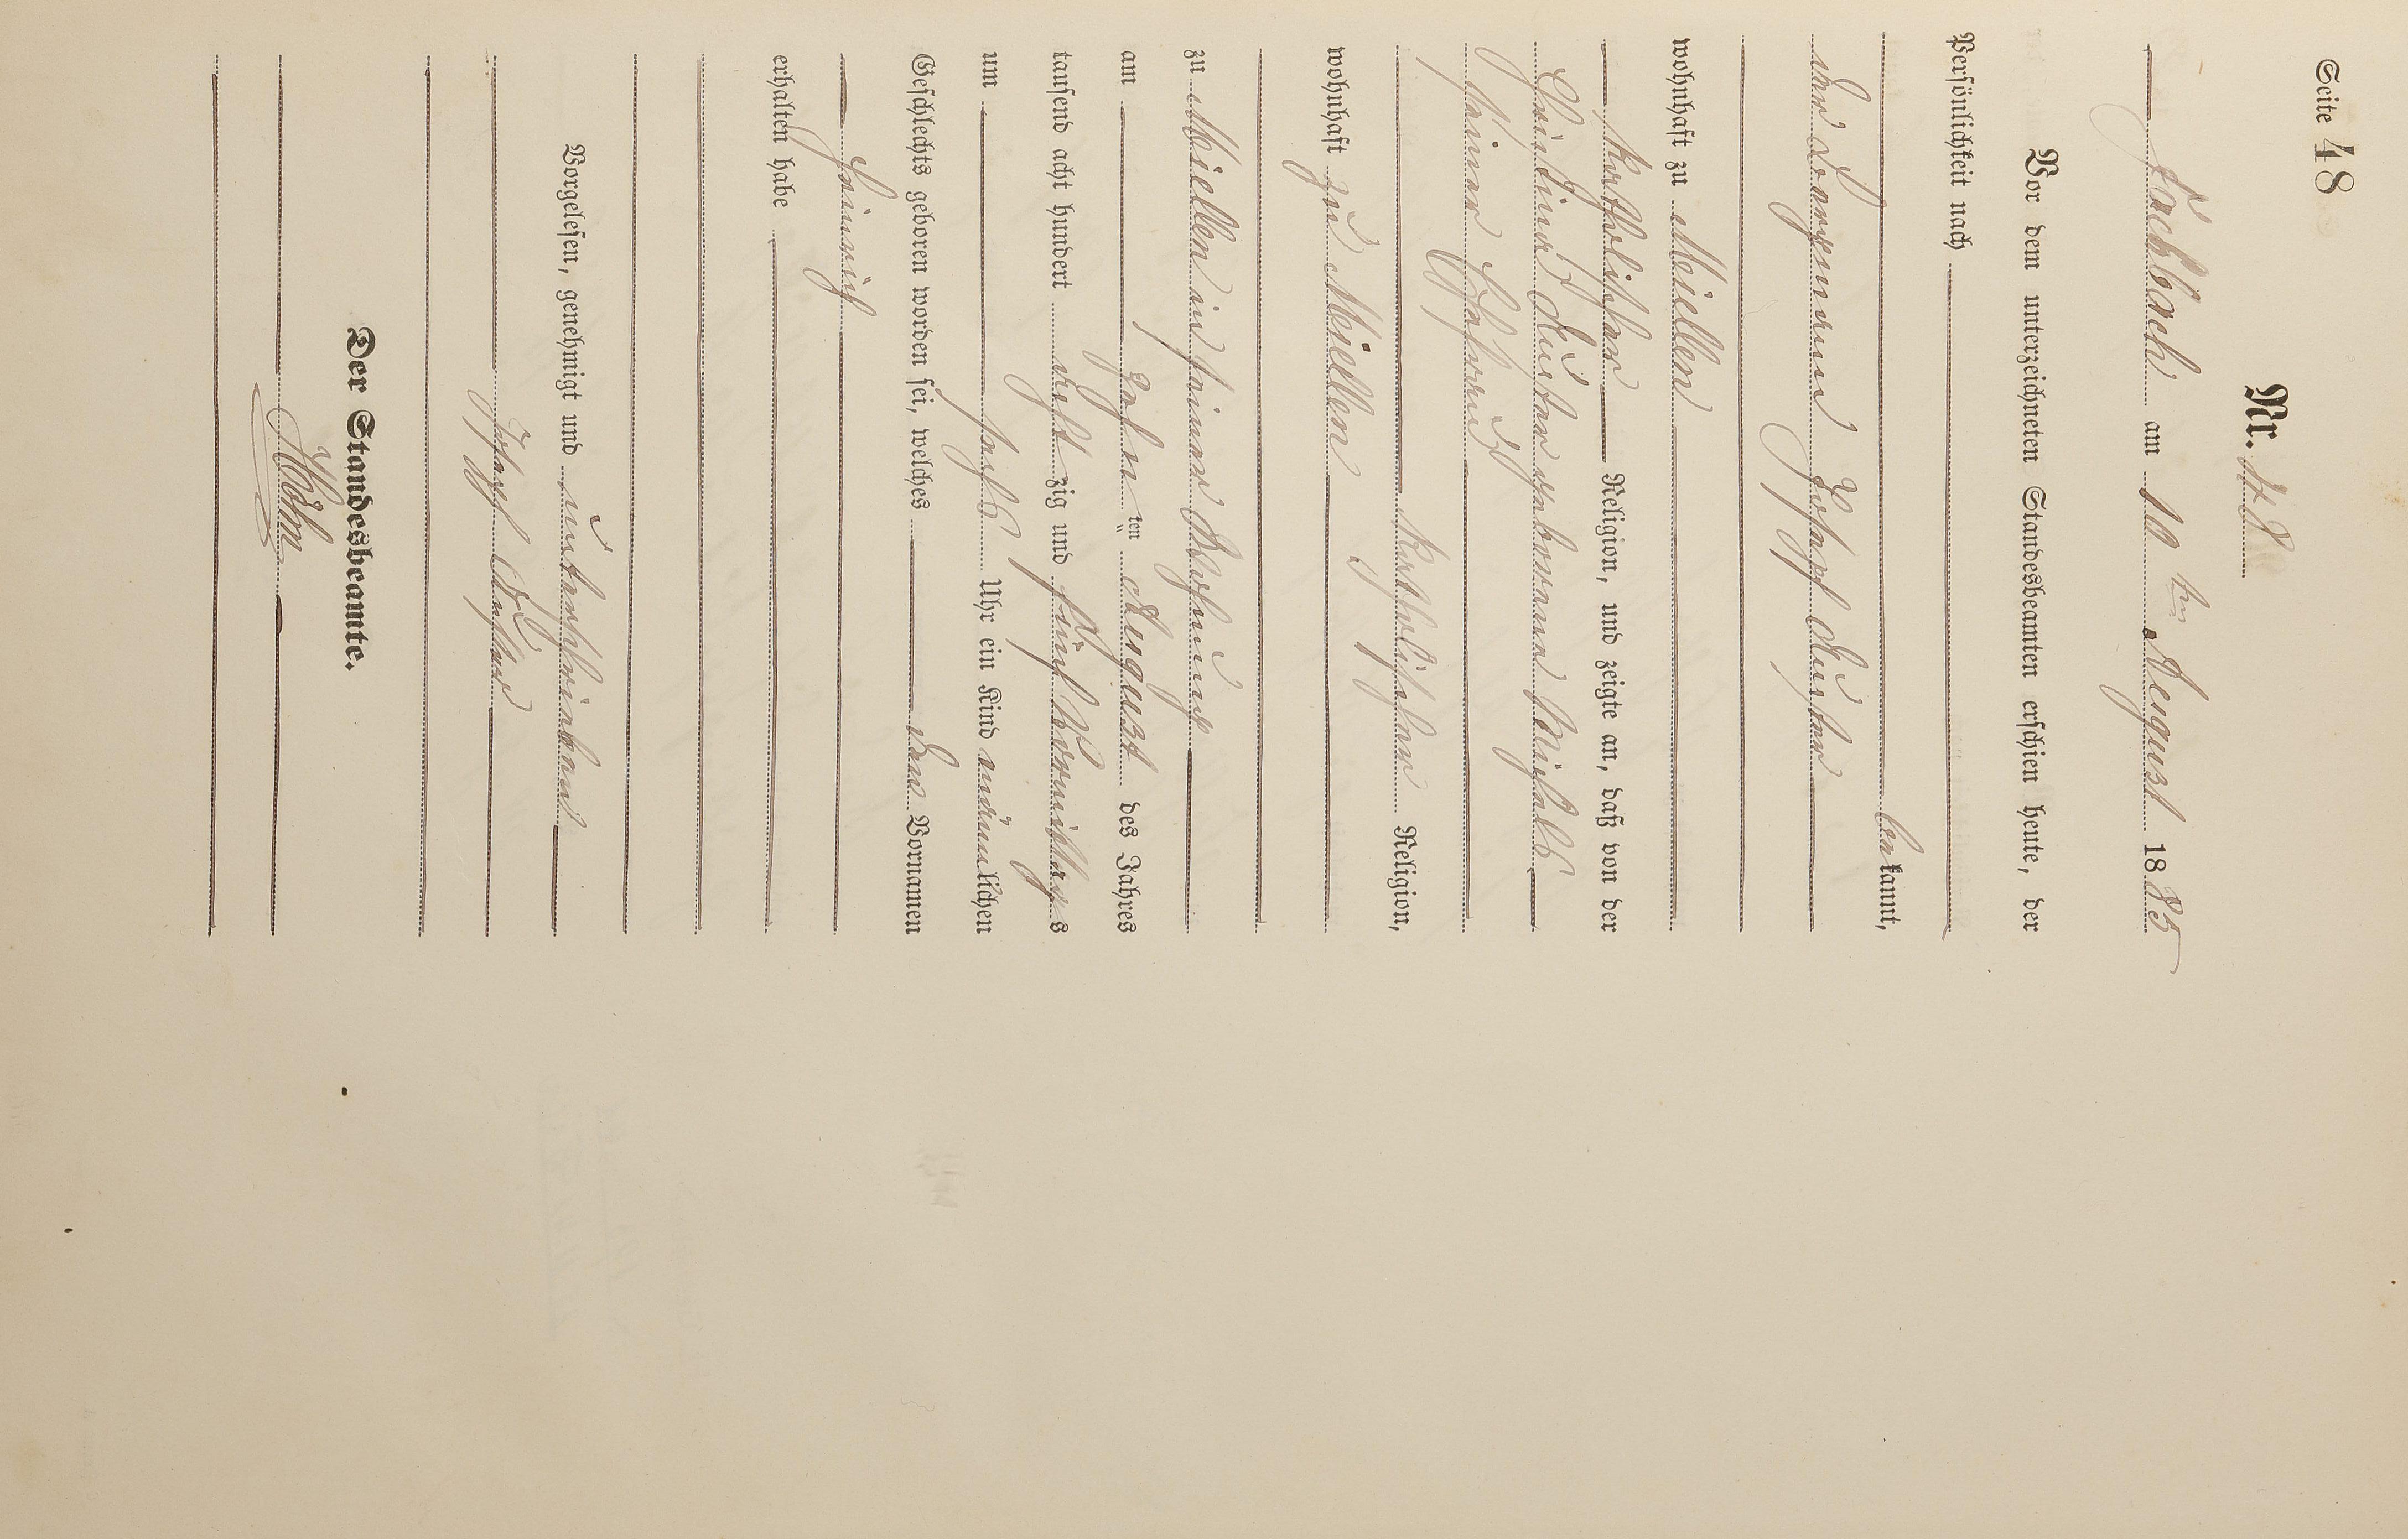 Seite 48
Nr. 48
Fachbach am 10 ten August 1885
Vor dem unterzeichneten Standesbeamten erschien heute, der
Persönlichkeit nach
bekannt,
der Bergmann Joseph
wohnhaft zu Miellen
katholischer Religion, und zeigte an, daß von der
geborene
seiner Ehefrau
katholischer Religion,
wohnhaft zu Miellen
zu Miellen in seiner Wohnung
am zehn ten August des Jahres
tausend acht hundert acht zig und fünf Vormittags
um sechs Uhr ein Kind männlichen
Geschlechts geboren worden sei, welches den Vornamen
Heinrich
erhalten habe
Vorgelesen, genehmigt und unterschrieben
Joseph
Der Standesbeamte.